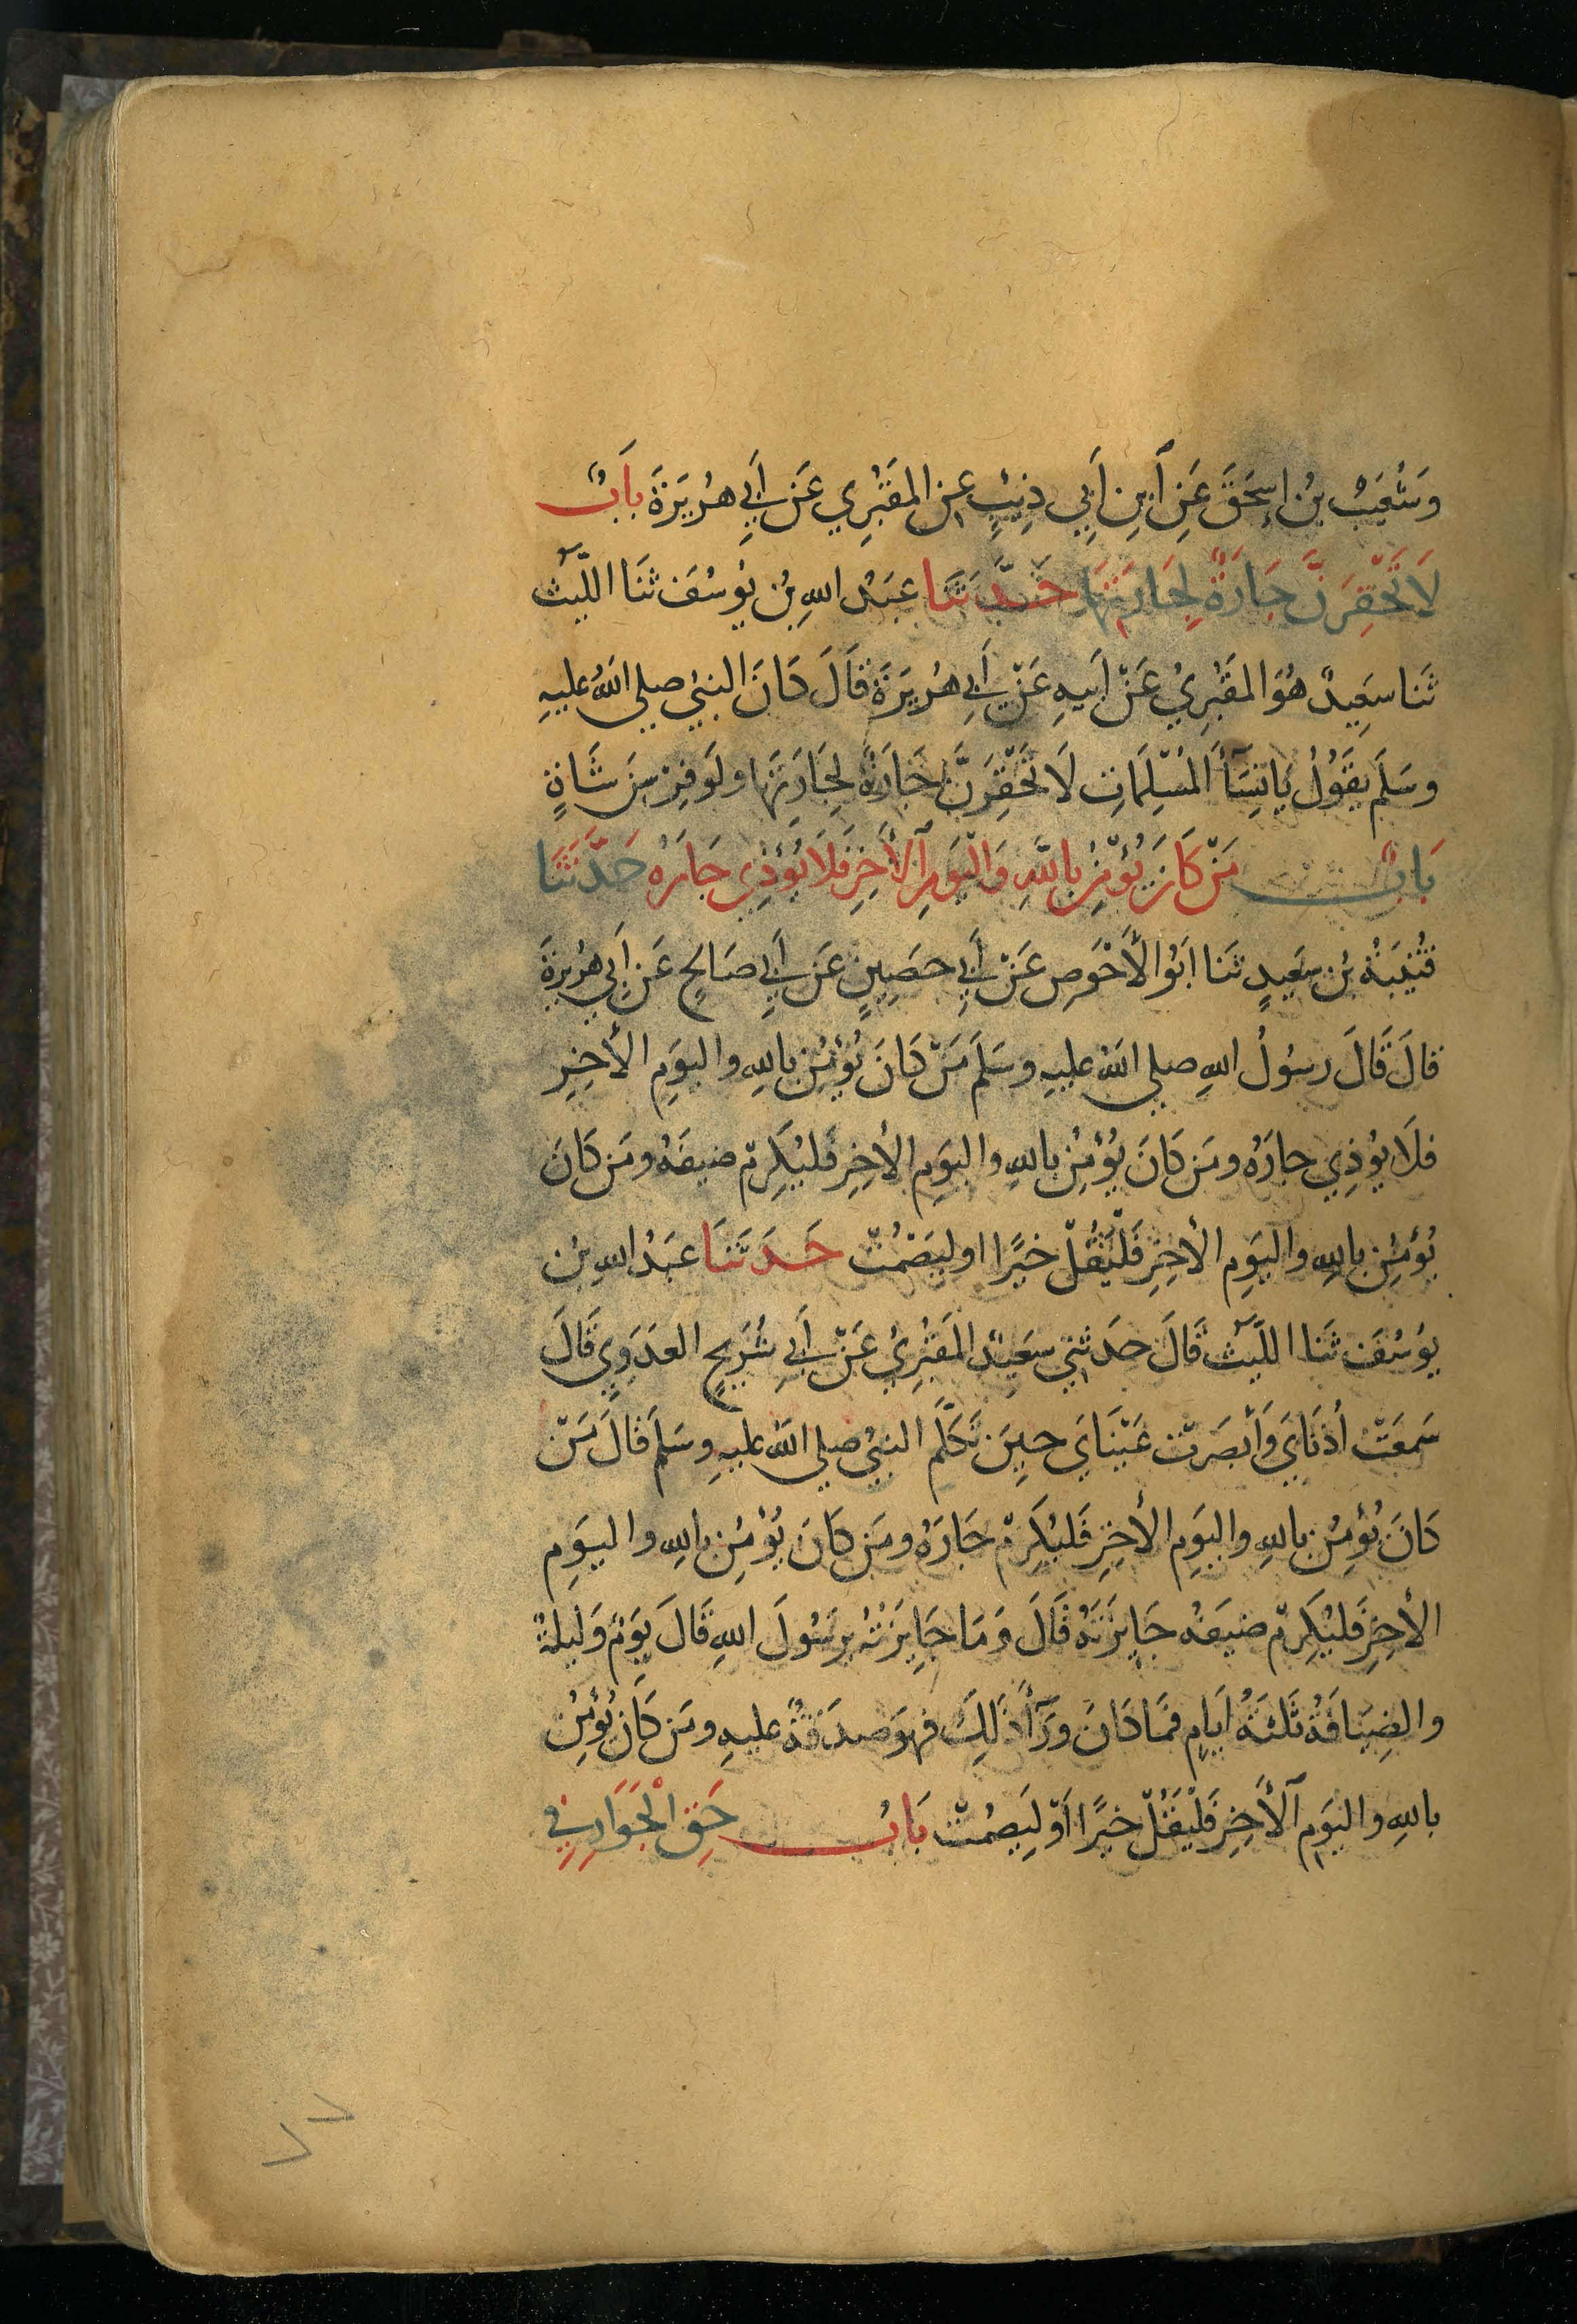 وَشُعَيْبُ بنُ إِسحَقَ عَنِ ٱبنِ أَبِي ذِئبٍ عنِ المَقبُرِي عَن أَبِي هُرَيَرَةَ بابٌ
لَا تَحْقِرَنَّ جَارَةٌ لِجَارَتِهَا حَدَّثَنَا عبَدُ اللهِ بنُ يُوسُفَ ثنَا اللَّيثُ
ثَنا سعَِيدٌ هُوَ المَقبُرِيُ عَنْ أَبيهِ عَنْ أَبِي هُرَيرَةَ قَالَ كَانَ النبيُ صلى اللهُ عليهِ
وسَلَم يقَوُلُ يَا نِسَأَ المُسْلِمَاتِ لَا تَحْقِرَنَّ جَارَةٌ لِجَارَتِهَا ولَو فِرْسِنَ شَاةٍ
بَابٌ مَنْ كَانَ يُؤْمِنُ بِاللَّهِ وَالْيَومِ ٱلأَخِرِ فَلَا يُؤذِي جَارَهُ حَدَّثَنَا
قُتَيبَةُ بنُ سعَيدٍ ثنَا أبَوُ الأَحْوَصِ عَنْ أَبِي حصَِينٍ عَن أَبِي صَالحٍ عَن أَبِي هُرَيرةَ
قالَ قَالَ رسوُلُ اللهِ صلى اللهُ عليهِ وسَلَمَ مَنْ كَانَ يُؤْمِنُ باللهِ واليوَمِ الأخِرِ
فلَا يُوذِي جارَهُ ومَن كَانَ يُؤْمِنُ باللهِ واليوَمِ الأخِرِ فَليُكرِمْ ضيفَهُ ومَن كَانَ
يُؤمِنُ باللهِ واليوَمِ الأخِرِ فَلْيَقُلْ خيرًا او ليَصْمُتْ حَدَثَنَا عَبَدُ اللهِ بنُ
يوُسُفَ ثنَا اللَّيثُ قَالَ حدَثني سعَيدٌ المَقبُرِيُ عَنْ أَبِي شُرَيحٍ العَدَوِي قَالَ
سَمعَتْ أذنَايَ وَأَبْصَرَتْ عَيْنَايَ حِينَ تَكَلَّمَ النبيُ صلى اللهُ عليهِ وسَلَمَ قَالَ مَنْ
كَانَ يُؤمِنُ باللهِ واليوَمِ الأخِرِ فَليُكرِمْ جَارَهُ ومَن كَانَ يُؤْمِنُ باللهِ واليوَمِ
الأخِرِ فَليُكرِمْ ضيَفهُ جَايزَتَهُ قَالَ وَمَا جَايزَتُهُ يرَسُولَ اللهِ قَالَ يَومٌ وَليلةٌ
والضِيَافَةُ ثَلثَةُ أيَامٍ فمَا كَانَ وَرَأَ ذَلِكَ فهوَ صدَقةٌ عليهِ ومَن كَانَ يُؤمِنُ
باللهِ واليَومِ ٱلأَخِرِ فَلْيَقُلْ خيرًا أَوْ لِيَصمُتْ بَابُ حَقِ الْجَوَارِ فِي